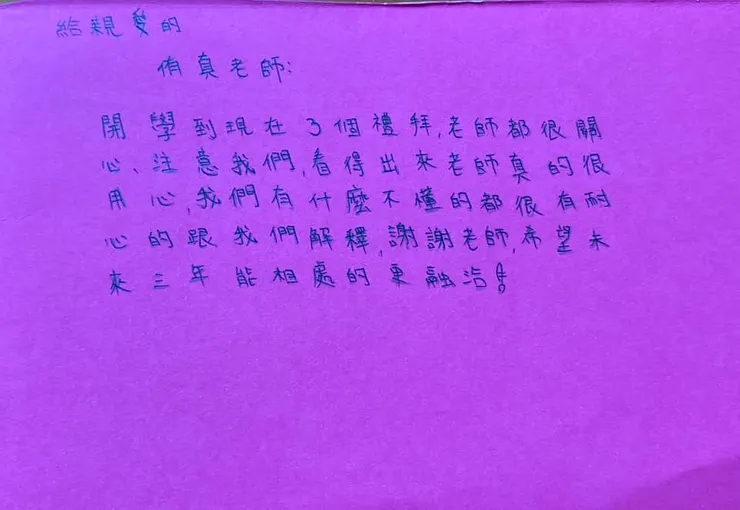 給親愛的
侑真老師:
開學到現在3個禮拜,老師都很關
心、注意我們,看得出來老師真的很
用心,我們有什麼不懂的都很有耐
心的跟我們解釋,謝謝老師,希望未
來三年能相處的更融洽!